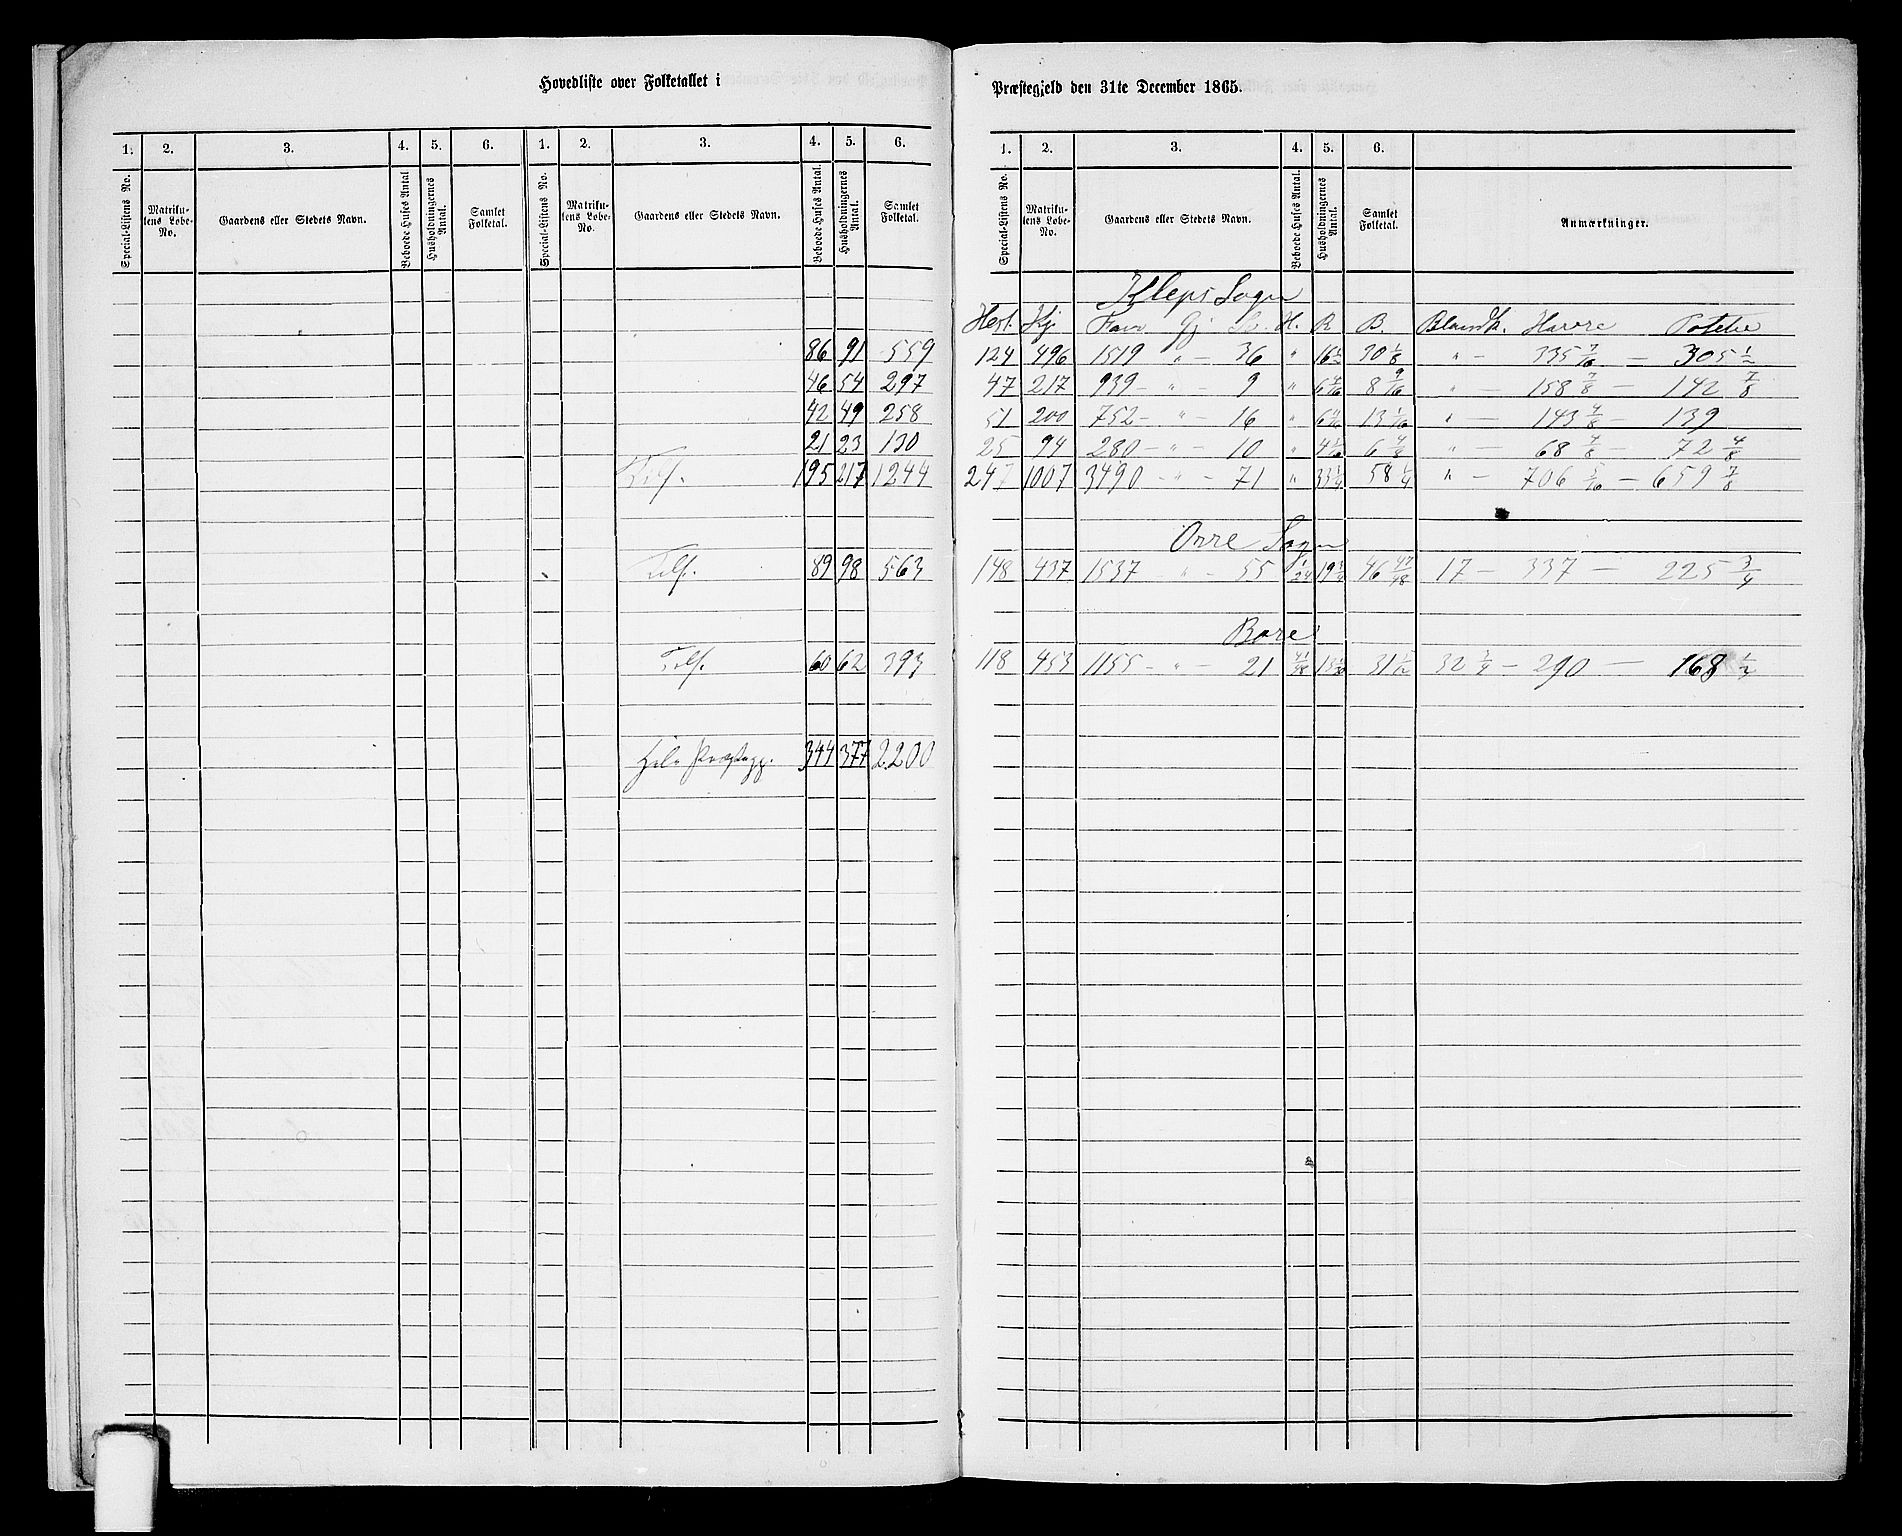 Hovedliste over Folketallet i
1. 2. 3. 4. 5. 6. 1. 2. 3. 4. 5. 6.
Special-Listens No. Matrikulens Løbe-No. Gaardens eller Stedets Navn. Beboede Huses Antal Husholdningernes Antal. Samlet Folketal. Special-Listens No. Matrikulens Løbe-No. Gaardens eller Stedets Navn. Beboede Huses Antal. Husholdningernes Antal. Samlet Folketal.
86 91 559
46 54 297
42 49 258
21 23 130
195 217 1244
89 98 563
60 62 393
Hele Præstegj. 344 377 2200
Præstegjeld den 31te December 1865.
1. 2. 3. 4. 5. 6.
Special-Listens No. Matrikulens Løbe-No. Gaardens eller Stedets Navn. Beboede Huses Antal. Husholdningernes Antal. Samlet Folketal. Anmærkninger.
Kleps Sogn
Hest. Kj. Faar Gj. Sv. H. R B. Blandk. Havre Potetes
124 496 1519 " - 36 " 16 1/2 30 1/8 " - 335 7/16 - 305 1/2
47 217 939 - " - 9 " 8 9/16 " - 158 7/8 - 142 7/8
51 200 752 - " - 16 " 13 1/16 " - 143 4/8 - 139
25 94 280 - " - 10 " 6 4/8 " - 68 4/8 - 72 4/8
247 1007 3490 - " - 71 " 33 1/4 58 1/4 " - 706 5/16 - 659 7/8
Orre Sogn
148 437 1537 " - 55 1/24 46 47/48 17 - 337 - 225 3/4
Bore
118 453 1155 - " - 21 41/48 31 1/12 32 3/4 - 290 - 168 1/2